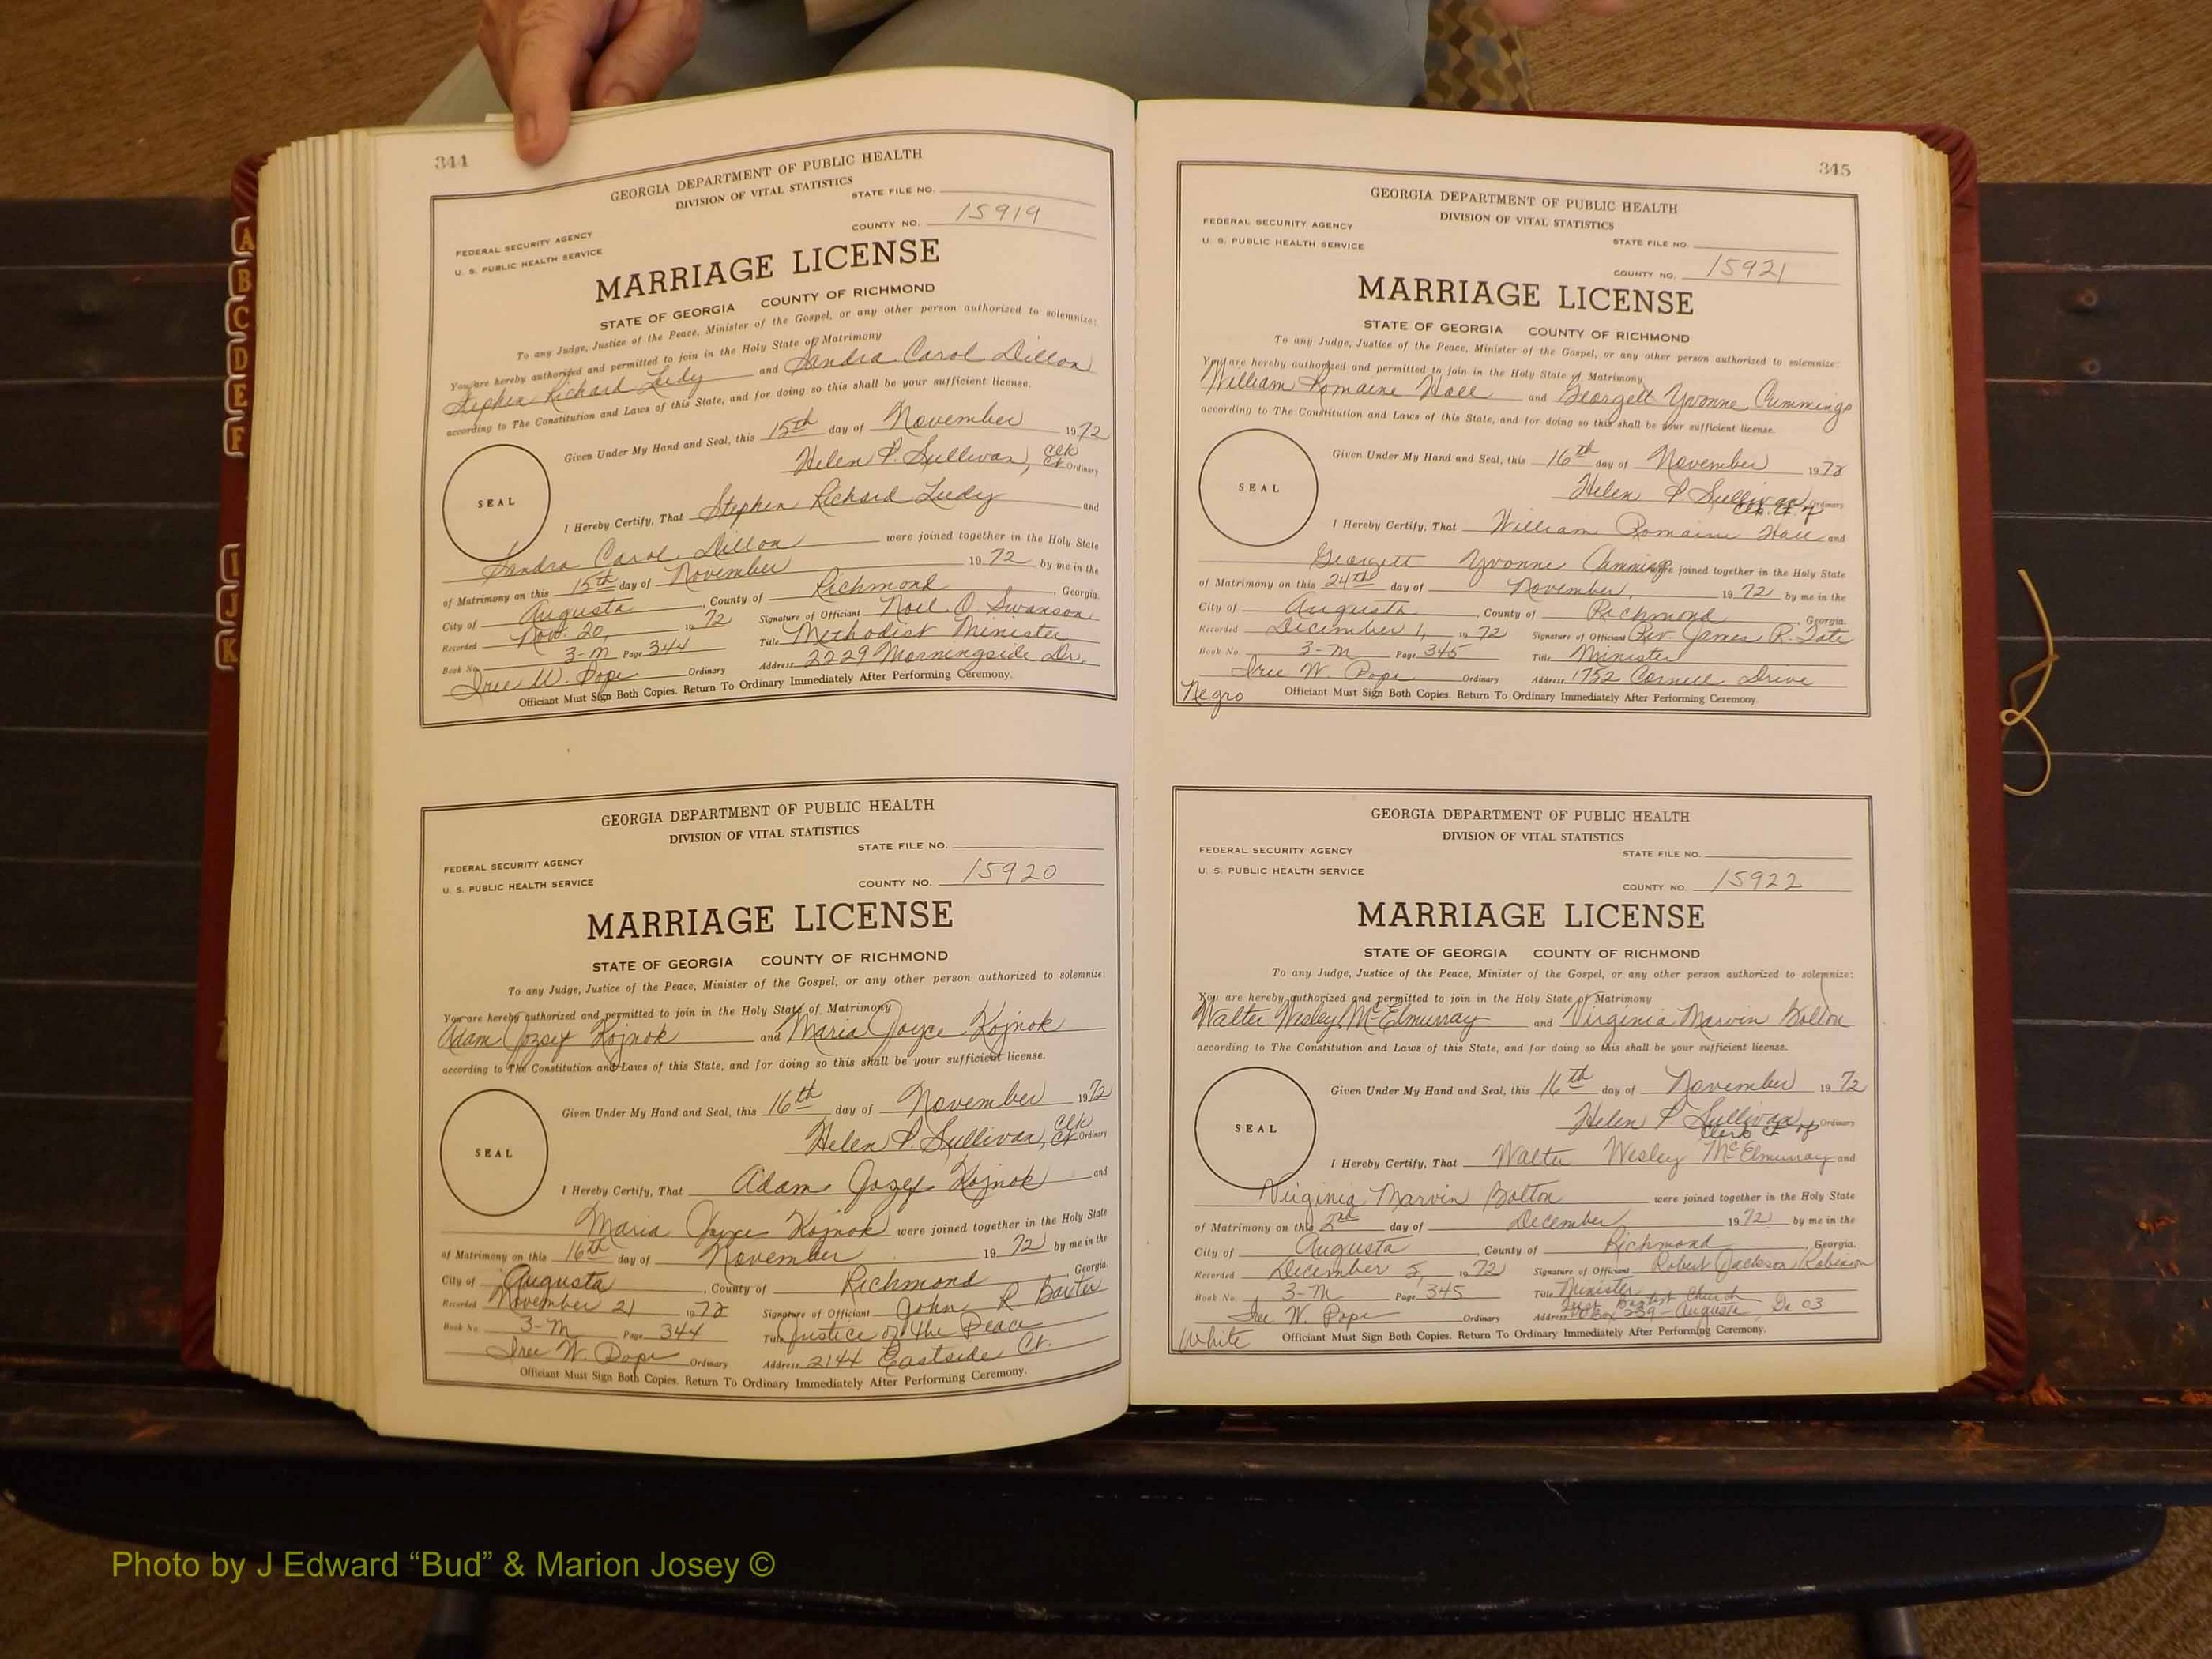 A
B
C
D
E
F
I
J
K
344
GEORGIA DEPARTMENT OF PUBLIC HEALTH
DIVISION OF VITAL STATISTICS
STATE FILE NO.
COUNTY NO. 15919
FEDERAL SECURITY AGENCY
U. S. PUBLIC HEALTH SERVICE
MARRIAGE LICENSE
STATE OF GEORGIA COUNTY OF RICHMOND
To any Judge, Justice of the Peace, Minister of the Gospel, or any other person authorized to solemnize:
You are hereby authorized and permitted to join in the Holy State of Matrimony
Stephen Richard Ludy and Sandra Carol Dillon
according to The Constitution and Laws of this State, and for doing so this shall be your sufficient license.
Given Under My Hand and Seal, this 15th day of November 1972
Helen P. Sullivan, Clk Ct. Ordinary
SEAL
I Hereby Certify, That Stephen Richard Ludy and
Sandra Carol Dillon were joined together in the Holy State
of Matrimony on this 15th day of November 1972 by me in the
City of Augusta, County of Richmond, Georgia.
Recorded Nov. 20, 1972 Signature of Official Noel O. Swanson
Book No. 3-M Page 344 Title Methodist Minister
Iree W. Pope Ordinary Address 2229 Morningside Dr.
Officiant Must Sign Both Copies. Return To Ordinary Immediately After Performing Ceremony.
GEORGIA DEPARTMENT OF PUBLIC HEALTH
DIVISION OF VITAL STATISTICS
STATE FILE NO.
FEDERAL SECURITY AGENCY
U. S. PUBLIC HEALTH SERVICE
COUNTY NO. 15920
MARRIAGE LICENSE
STATE OF GEORGIA COUNTY OF RICHMOND
To any Judge, Justice of the Peace, Minister of the Gospel, or any other person authorized to solemnize:
You are hereby authorized and permitted to join in the Holy State of Matrimony
Adam Jozsef Kojnok and Maria Joyce Kojnok
according to The Constitution and Laws of this State, and for doing so this shall be your sufficient license.
Given Under My Hand and Seal, this 16th day of November 1972
Helen P. Sullivan, Clk Ct. Ordinary
SEAL
I Hereby Certify, That Adam Jozef Kojnok and
Maria Joyce Kojnok were joined together in the Holy State
of Matrimony on this 16th day of November 1972 by me in the
City of Augusta, County of Richmond, Georgia
Recorded November 21, 1972 Signature of Official John R Baxter
Book No. 3-M Page 344 Title Justice of the Peace
Iree W. Pope Ordinary Address 2144 Eastside Ct.
Officiant Must Sign Both Copies. Return To Ordinary Immediately After Performing Ceremony.
345
GEORGIA DEPARTMENT OF PUBLIC HEALTH
DIVISION OF VITAL STATISTICS
FEDERAL SECURITY AGENCY
U. S. PUBLIC HEALTH SERVICE
STATE FILE NO.
COUNTY NO. 15921
MARRIAGE LICENSE
STATE OF GEORGIA COUNTY OF RICHMOND
To any Judge, Justice of the Peace, Minister of the Gospel, or any other person authorized to solemnize:
You are hereby authorized and permitted to join in the Holy State of Matrimony
William Romaine Hall and Georgett Yvonne Cummings
according to The Constitution and Laws of this State, and for doing so this shall be your sufficient license.
Given Under My Hand and Seal, this 16th day of November 1972
Helen P Sullivan Ordinary
Clk. Ct. of
SEAL
I Hereby Certify, That William Romaine Hall and
Georgett Yvonne Cummings were joined together in the Holy State
of Matrimony on this 24th day of November, 1972 by me in the
City of Augusta, County of Richmond, Georgia.
Recorded December 1, 1972 Signature of Official Rev. James R. Tate
Book No. 3-M Page 345 Title Minister
Iree W. Pope Ordinary Address 1752 Cornell Drive
Negro Officiant Must Sign Both Copies. Return To Ordinary Immediately After Performing Ceremony.
GEORGIA DEPARTMENT OF PUBLIC HEALTH
DIVISION OF VITAL STATISTICS
FEDERAL SECURITY AGENCY
U. S. PUBLIC HEALTH SERVICE
STATE FILE NO.
COUNTY NO. 15922
MARRIAGE LICENSE
STATE OF GEORGIA COUNTY OF RICHMOND
To any Judge, Justice of the Peace, Minister of the Gospel, or any other person authorized to solemnize:
You are hereby authorized and permitted to join in the Holy State of Matrimony
Walter Wesley McElmurray and Virginia Marvin Bolton
according to The Constitution and Laws of this State, and for doing so this shall be your sufficient license.
Given Under My Hand and Seal, this 16th day of November 1972
Helen P Sullivan Ordinary
Clerk Ct of
SEAL
I Hereby Certify, That Walter Wesley McElmurray and
Virginia Marvin Bolton were joined together in the Holy State
of Matrimony on this 2nd day of December 1972 by me in the
City of Augusta, County of Richmond, Georgia.
Recorded December 5, 1972 Signature of Official Robert Jackson Robinson
Book No. 3-M Page 345 Title Minister
First Baptist Church
Iree W. Pope Ordinary Address PO Box 239 - Augusta, Ga 03
White Officiant Must Sign Both Copies. Return To Ordinary Immediately After Performing Ceremony.
Photo by J Edward “Bud” & Marion Josey ©